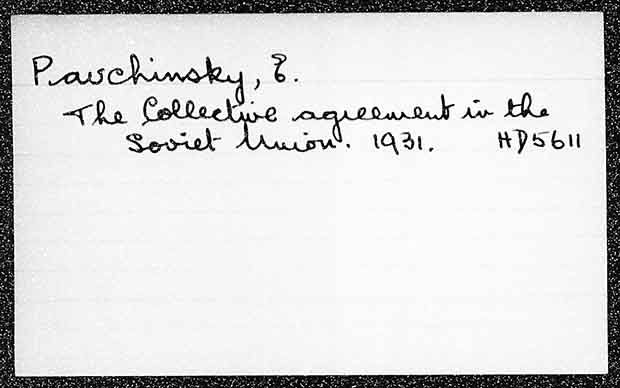 Pavchinsky, E.
The Collective agreement in the
Soviet Union. 1931. HD5611